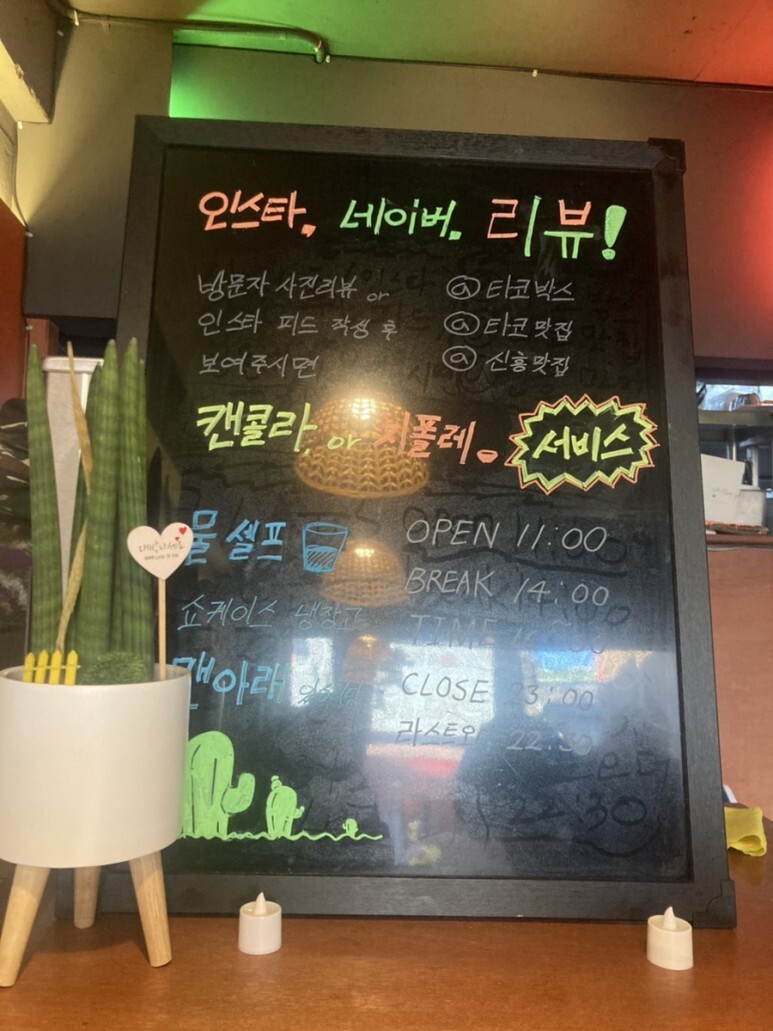 인스타. 네이버. 리뷰!
방문자 사진리뷰 or
인스타 피드 작성 후
보여주시면
@ 타코박스
@ 타코맛집
@ 신흥맛집
캔콜라, or 치폴레. 서비스
물 셀프
쇼케이스 냉장고
맨아래
OPEN 11:00
BREAK 14:00
TIME
CLOSE 23:00
라스트오더 22:30
22:30
대박나세요